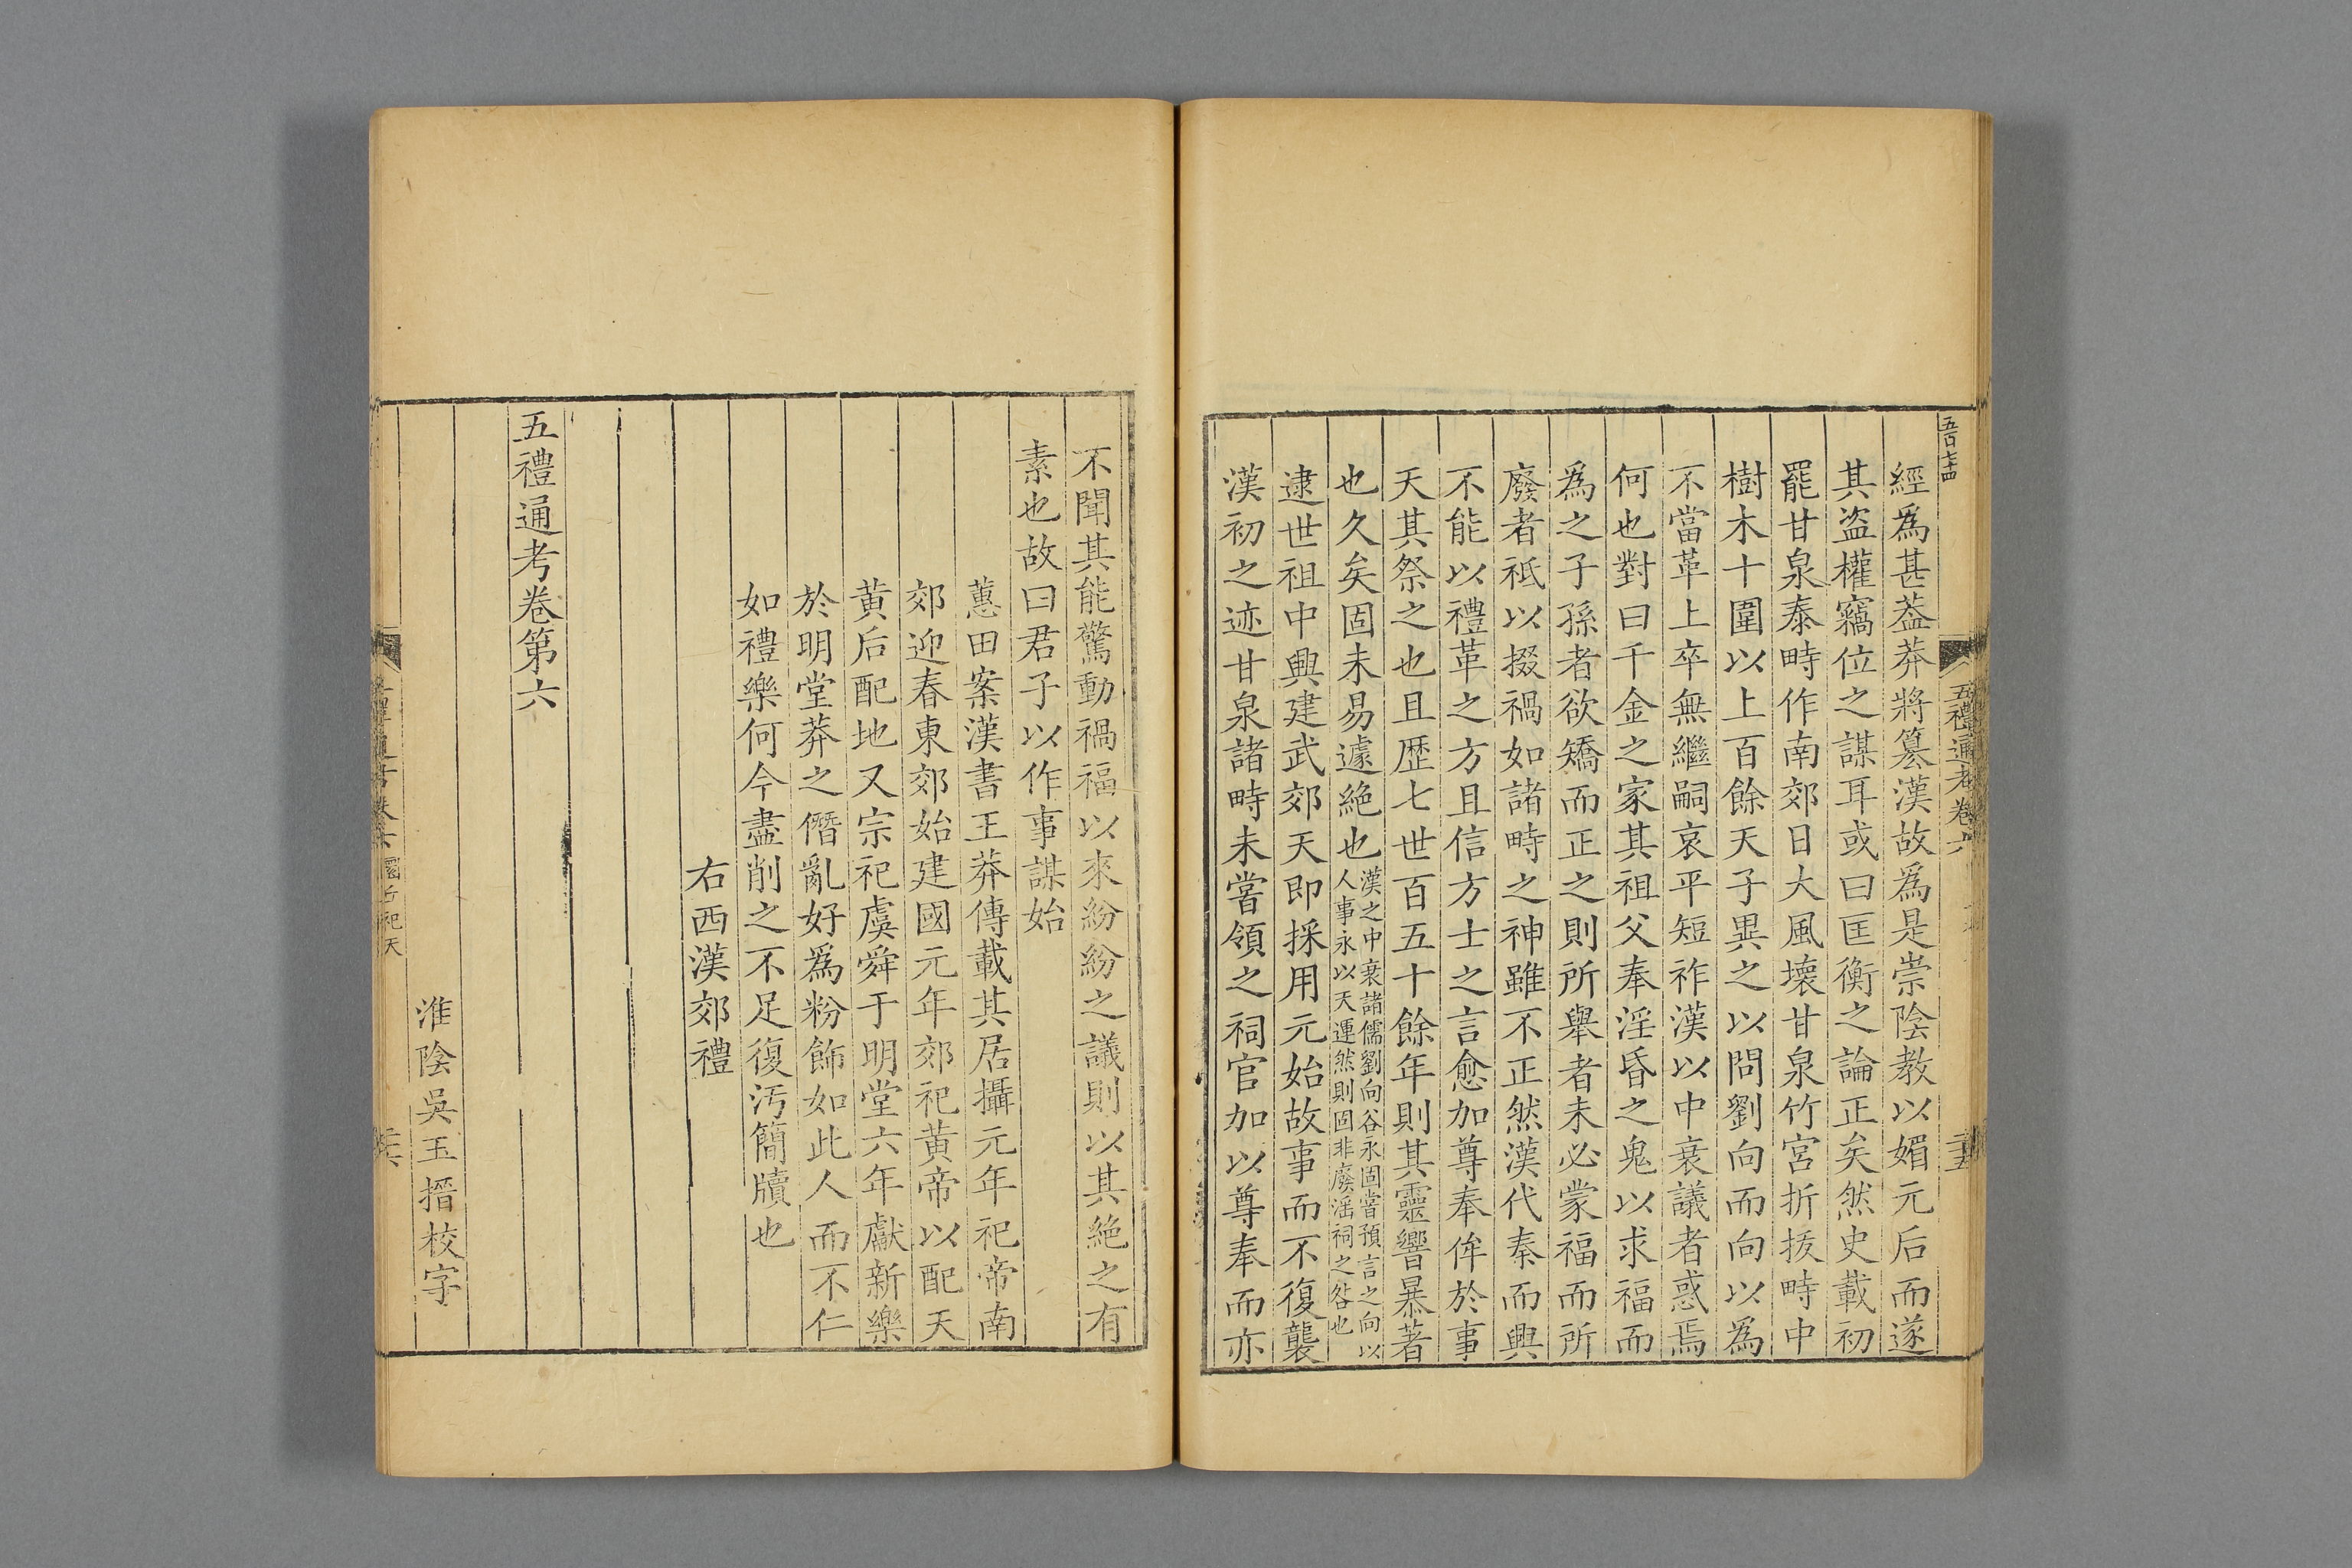 五百七十四
五禮通考卷六
經爲甚葢莽將篡漢故爲是崇陰教以媚元后而遂
其盜權竊位之謀耳或曰匡衡之論正矣然史載初
罷甘泉泰畤作南郊日大風壞甘泉竹宮折拔畤中
樹木十圍以上百餘天子異之以問劉向而向以爲
不當革上卒無繼嗣哀平短祚漢以中衰議者惑焉
何也對曰千金之家其祖父奉淫昏之鬼以求福而
爲之子孫者欲矯而正之則所舉者未必蒙福而所
廢者祇以掇禍如諸畤之神雖不正然漢代秦而興
不能以禮革之方且信方士之言愈加尊奉侔於事
天其祭之也且歷七世百五十餘年則其靈響暴著
也久矣固未易遽絶也漢之中衰諸儒劉向谷永固嘗預言之向以
人事永以天運然則固非廢淫祠之咎也
逮世祖中興建武郊天即採用元始故事而不復襲
漢初之迹甘泉諸畤未嘗領之祠官加以尊奉而亦
不聞其能驚動禍福以來紛紛之議則以其絶之有
素也故曰君子以作事謀始
蕙田案漢書王莽傳載其居攝元年祀帝南
郊迎春東郊始建國元年郊祀黃帝以配天
黃后配地又宗祀虞舜于明堂六年獻新樂
於明堂莽之僭亂好爲粉飾如此人而不仁
如禮樂何今盡削之不足復汚簡牘也
右西漢郊禮
五禮通考卷第六
淮陰吳玉搢校字